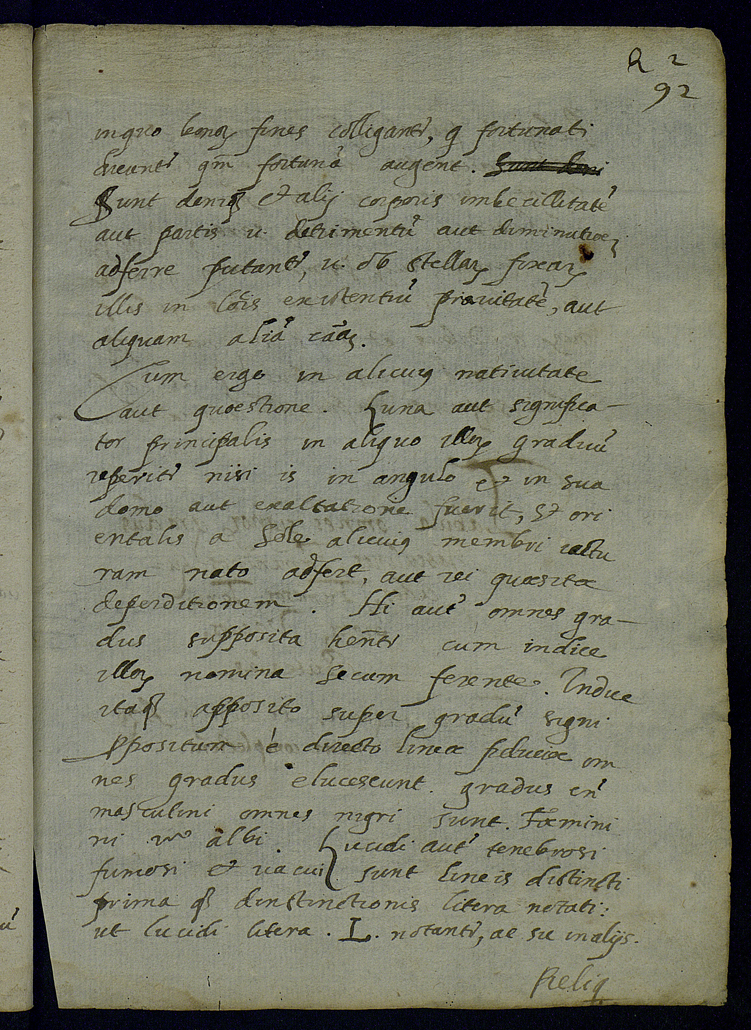 R 2
92
inquo bonoꝝ fines colligant᷑, q̃ fortunati
dicunt᷑ qm̃ fortunã augent. Sunt
Sunt deniq̃ et alij corporis imbecillitatẽ
aut partis ũ detrimentũ aut diminutioẽ
adferre putant᷑, ũ ob stellaꝝ fixaꝝ
illis in locis existentiũ prauitatẽ, aut
aliquam aliã cãꝫ.
Cum ergo in alicuiꝰ natiuitate
aut quæstione. Luna aut significa-
tor principalis in aliquo illoꝝ graduũ
reperit᷑ nisi is in angulo et in sua
domo aut exaltatione fuerit, et ori
entalis a Sole alicuiꝰ membri iactu
ram nato adfert, aut rei quæsitæ
deperditionem. Hi autẽ omnes gra-
dus supposita hẽnt᷑ cum indice
illoꝝ nomina secum ferente. Indice
itaq̃ apposito super gradũ signi
ꝓpositum è directo lineæ fiduciæ om
nes gradus elucescunt. gradus en᷑
masculini omnes nigri sunt. Fœmini
ni vº albi. Lucidi aut᷑ tenebrosi
fumosi et uacui sunt lineis distincti
prima q̃ dinstinctionis litera notati:
ut lucidi litera. L. notant᷑, ac sic in alijs.
Reliq